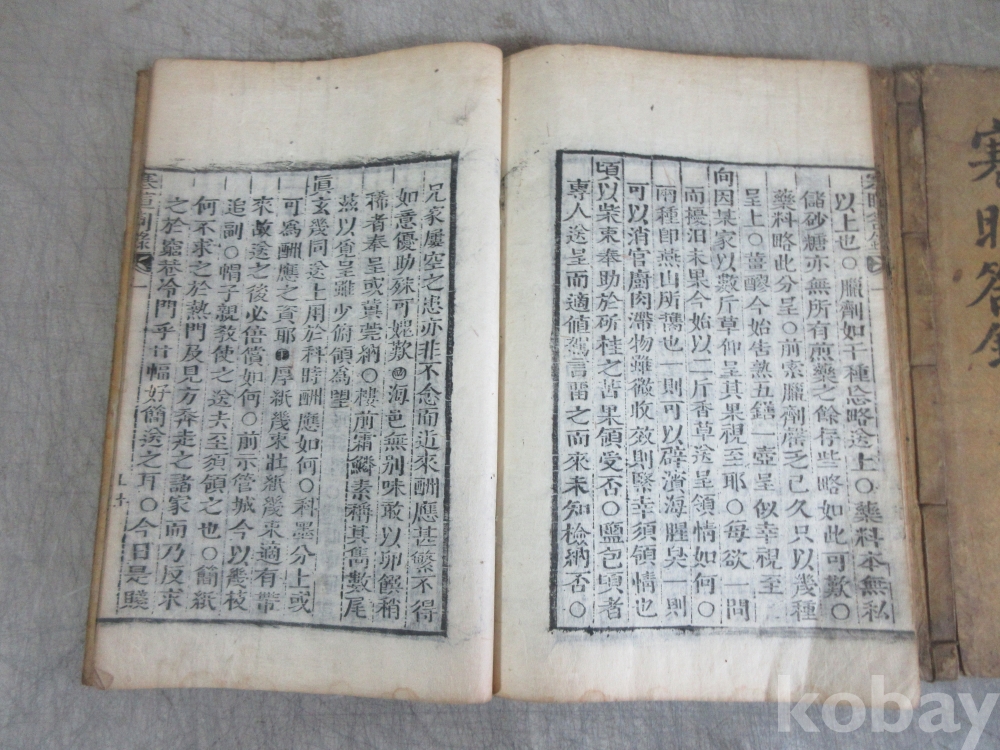 以上也○臘劑如干種忘略送上○藥料本無私
儲砂糖亦無所有煎藥之餘存些略如此可歎○
藥料略此分呈○前索臘劑罄乏已久只以幾種
呈上○薑醪今始告熟五鐥一壺呈似幸視至
向因某家以數斤草仰呈其果視至耶○每欲一問
而擾汨未果今始以二斤香草送呈領情如何○
兩種即燕山所購也一則可以辟瀕海腥臭一則
可以消官廚肉滯物雖微收效則緊幸須領情也
頃以柴束奉助於斫桂之苦果領受否○鹽包頃者
專人送呈而適値駕言留之而來未知檢納否○
兄家屢空之患亦非不念而近來酬應甚繁不得
如意優助殊可媿歎 海邑無別味敢以卵饌稍
稀者奉呈或冀莞納○樓前霜鱗素稱其雋數尾
茲以覓呈雖少俯領爲望
眞玄幾同送上用於科時酬應如何○科墨分上或
可爲酬應之資耶 厚紙幾束壯紙幾束適有帶
來故送之後必倍償如何○前示管城今以幾枝
追副○帽子親敎使之送去至須領之也○簡紙
何不求之於熱門及見方奔走之諸家而乃反求
之於窮巷冷門乎廿幅好簡送之耳○今日是賤
寒暄箚錄
kobay